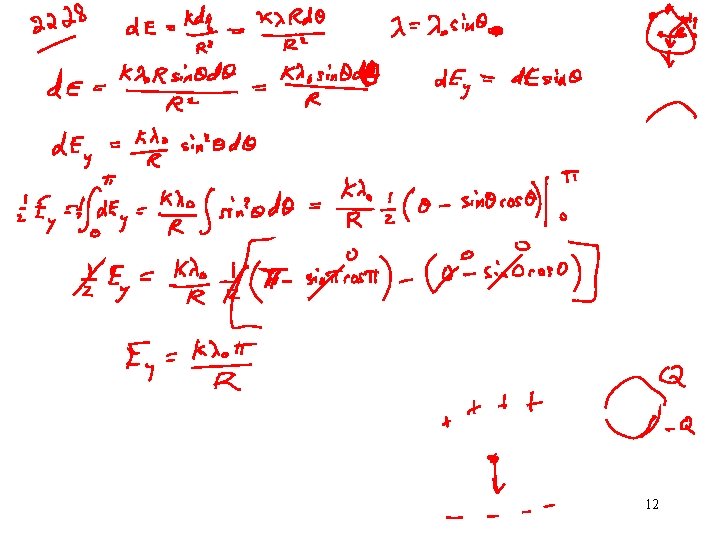 2228 dE = kdq/R² = KλRdθ/R² λ = λ₀sinθ
dE = Kλ₀Rsinθdθ/R² = Kλ₀sinθdθ/R dE_y = dEsinθ
dE_y = Kλ₀/R sin²θdθ
½E_y = ½∫₀^π dE_y = Kλ₀/R ∫sin²θdθ = Kλ₀/R ½(θ - sinθcosθ)|₀^π
½E_y = Kλ₀/R ½[(π - sinπcosπ) - (0 - sin0cos0)] 0 0 0
E_y = Kλ₀π/R
Q
+ + + +
-Q
- - - -
12